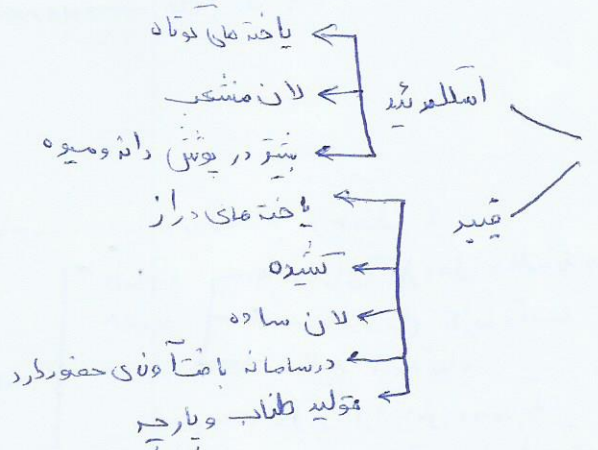 اسکلروئید
یاخته های کوتاه
لان منشعب
بیشتر در پوشش دانه و میوه
فیبر
یاخته های دراز
کشیده
لان ساده
در سامانه بافت آوندی حضور دارد
تولید طناب و پارچه